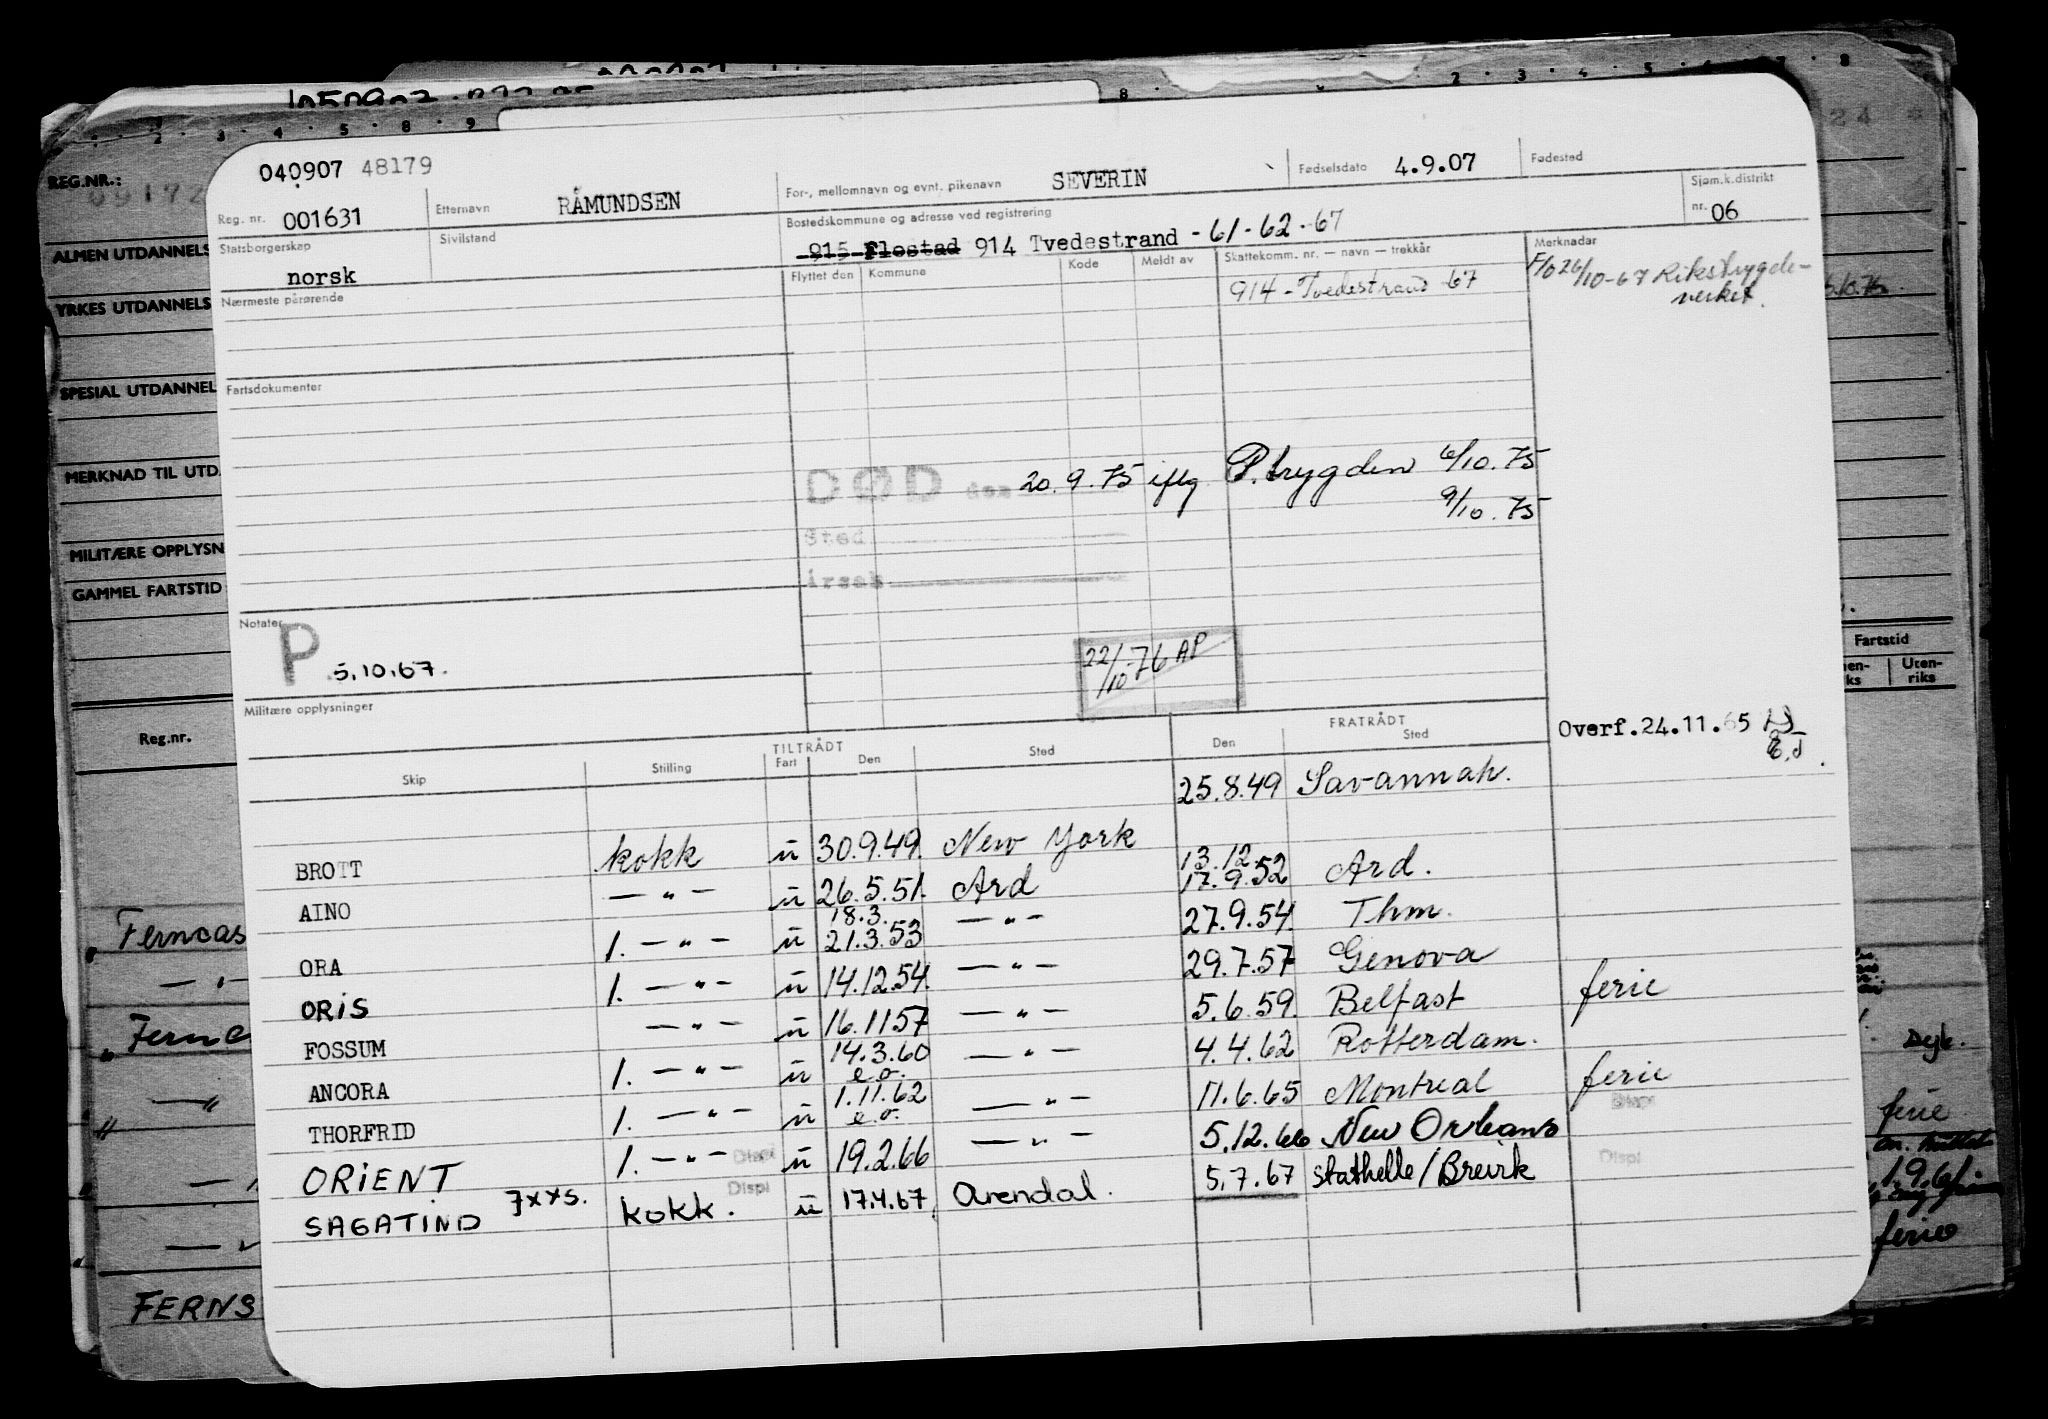 040907 48179
Reg. nr. 001631
Etternavn RÅMUNDSEN
For-, mellomnavn og evnt. pikenavn SEVERIN
Fødselsdato 4.9.07
Fødested
Statsborgerskap norsk
Sivilstand
Bostedskommune og adresse ved registrering
915 Flostad 914 Tvedestrand - 61-62-67
Sjøm.k.distrikt nr. 06
Nærmeste pårørende
Flyttet den Kommune Kode Meldt av Skattekomm. nr. — navn — trekkår
914 - Tvedestrand 67
Merknadar
F/o 26/10-67 Rikstrygde-
verket.
Fartsdokumenter
DØD den 20.9.75 iflg. P.trygden 6/10.75
9/10.75
Sted
Årsak
Notater
P 5.10.67.
22/10-76 AP
Militære opplysninger
Overf.24.11.65
TILTRÅDT FRATRÅDT
Skip Stilling Fart Den Sted Den Sted
25.8.49 Savannah.
BROTT kokk u 30.9.49. New York 13.12.
AINO — " — u 26.5.51. Ard 17.9.52 Ard.
18.3.
ORA 1. — " — u 21.3.53 — " — 27.9.54. Thm.
ORIS 1. — " — u 14.12.54. — " — 29.7.57 Genova
FOSSUM — " — u 16.11.57 — " — 5.6.59. Belfast ferie
ANCORA 1. — " — u 14.3.60 e.o. — " — 4.4.62 Rotterdam.
THORFRID 1. — " — u 1.11.62 e.o. — " — 11.6.65 Montreal ferie
Displ
ORIENT 1. — " — Displ u 19.2.66 — " — 5.12.66 New Orleans
SAGATIND 7xxs. kokk. Displ u 17.4.67. Arendal. 5.7.67 Stathelle/Brevik Displ
REG.NR.:
09172
ALMEN UTDANNELS
YRKES UTDANNELS
SPESIAL UTDANNEL
MERKNAD TIL UTD.
MILITÆRE OPPLYSN
GAMMEL FARTSTID
Reg.nr.
Ferncas
Fernc
FERNS
Fartstid
Uten-
riks
Dejk.
ferie
1.9.61
ferie